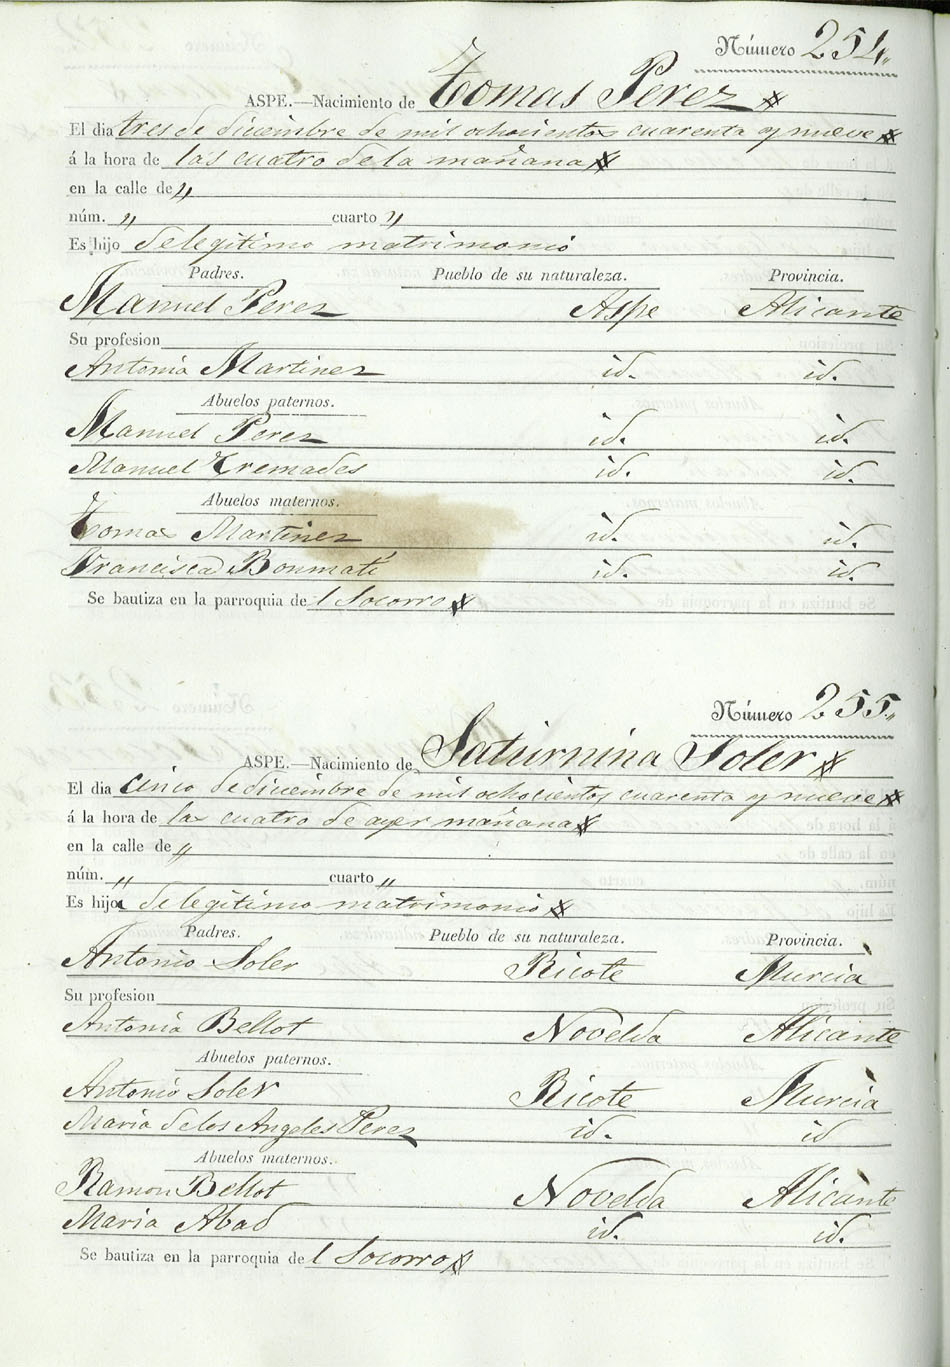 Número 254.
ASPE.—Nacimiento de Tomas Perez
El dia tres de diciembre de mil ochocientos cuarenta y nueve
á la hora de las cuatro de la mañana
en la calle de "
núm. " cuarto "
Es hijo de legitimo matrimonio
Padres. Pueblo de su naturaleza. Provincia.
Manuel Perez Aspe Alicante
Su profesion
Antonia Martinez id. id.
Abuelos paternos.
Manuel Perez id. id.
Manuel Tremades id. id.
Abuelos maternos.
Tomas Martinez id. id.
Francisca Bonmatí id. id.
Se bautiza en la parroquia de l Socorro
Número 255.
ASPE.—Nacimiento de Saturnina Soler
El dia cinco de diciembre de mil ochocientos cuarenta y nueve
á la hora de las cuatro de ayer mañana
en la calle de "
núm. " cuarto "
Es hija de legitimo matrimonio
Padres. Pueblo de su naturaleza. Provincia.
Antonio Soler Ricote Murcia
Su profesion
Antonia Bellot Novelda Alicante
Abuelos paternos.
Antonio Soler Ricote Murcia
Maria de los Angeles Perez id. id
Abuelos maternos.
Ramon Bellot Novelda Alicante
Maria Abad id. id.
Se bautiza en la parroquia de l Socorro